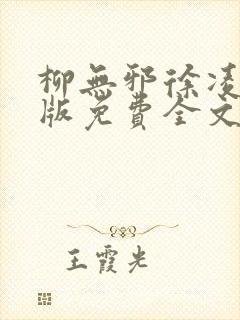 柳無邪徐凌
版免費全文
王霞光